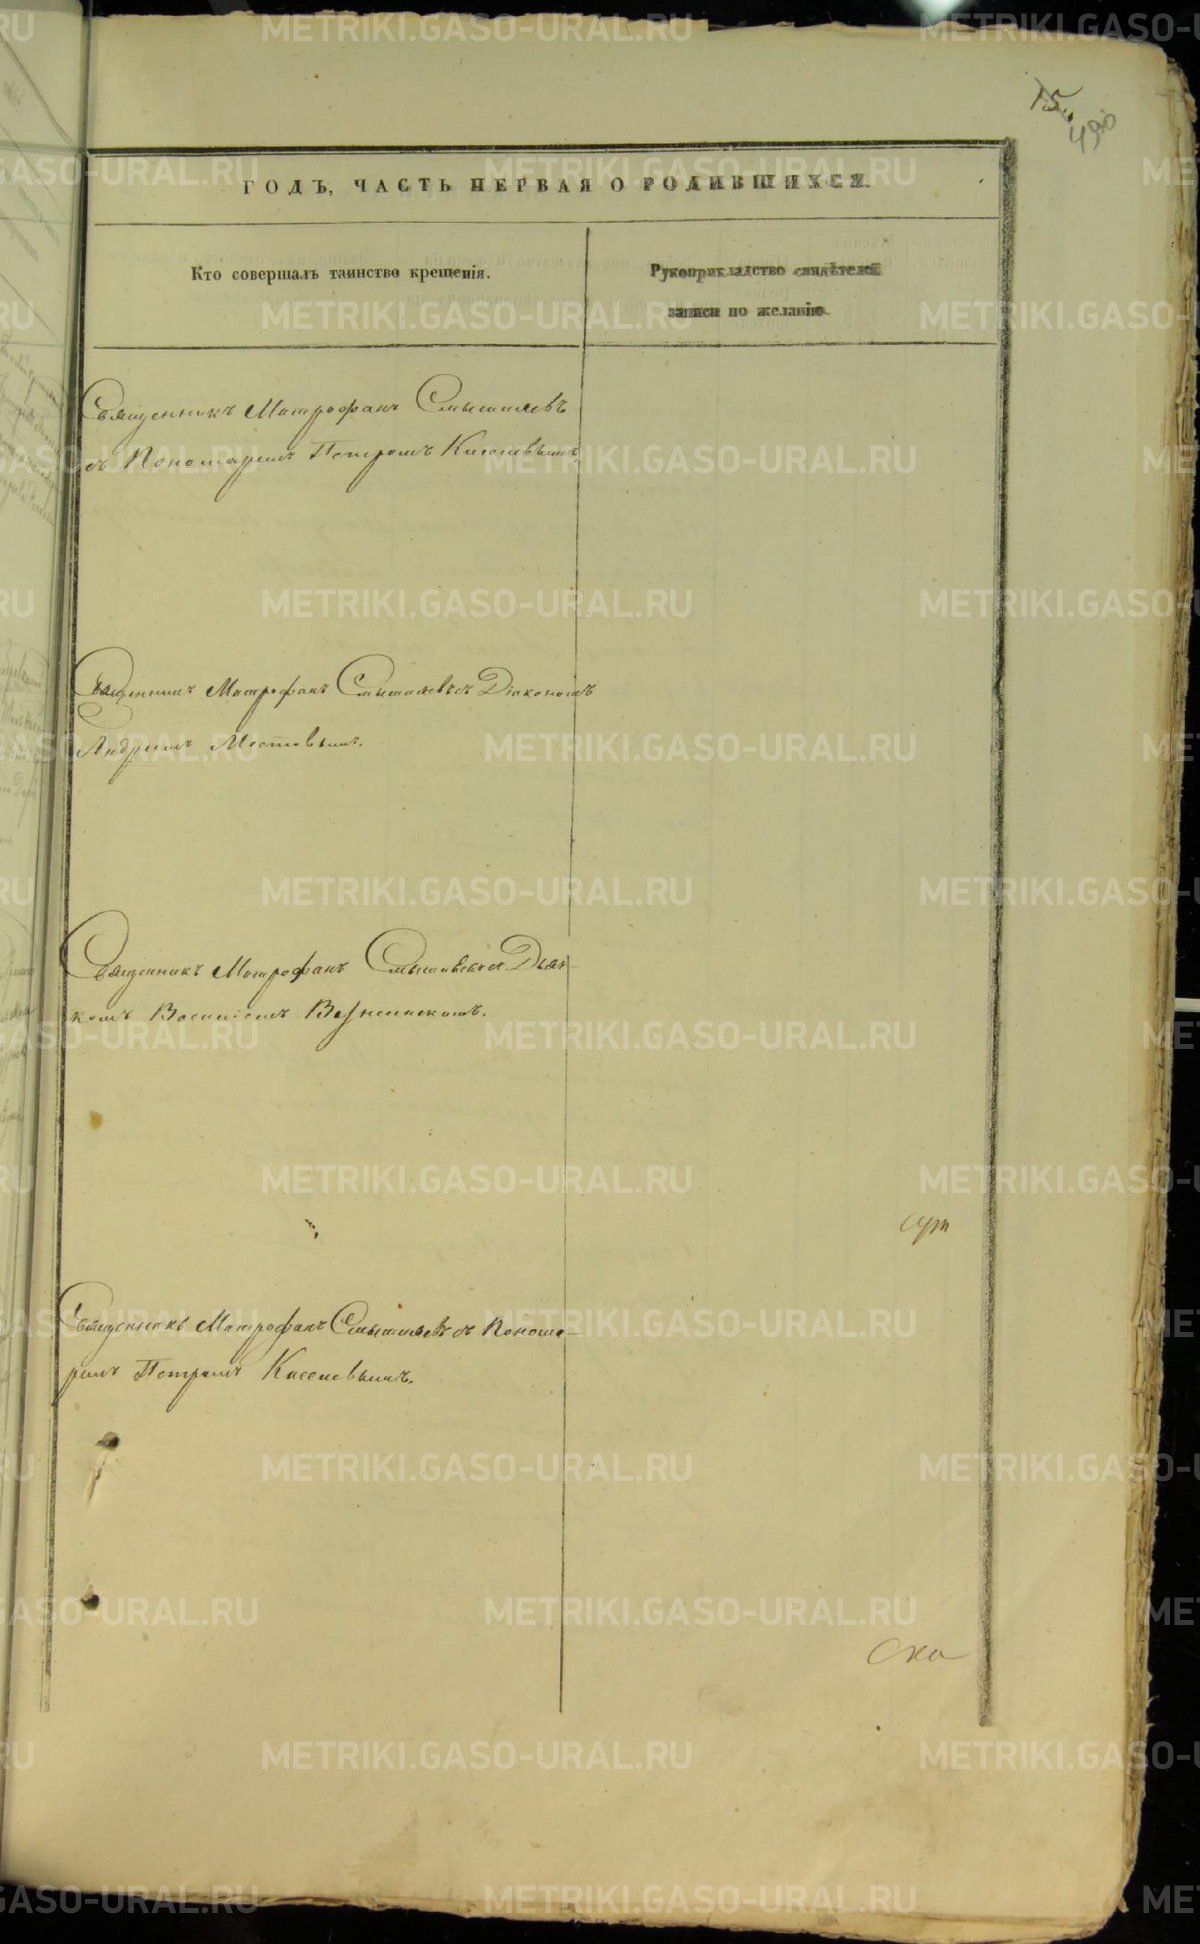 15
490
ГОДЪ, ЧАСТЬ ПЕРВАЯ О РОДИВШИХСЯ.
Кто совершалъ таинство крещенія.
Рукоприкладство свидѣтелей
записи по желанію.
Священникъ Митрофанъ Смышляевъ
съ Пономаремъ Петромъ Киселевымъ.
Священникъ Митрофанъ Смышляевъ съ Діакономъ
Андреемъ
Священникъ Митрофанъ Смышляевъ съ Дьяч-
комъ Василіемъ Вознесенскимъ.
Священникъ Митрофанъ Смышляевъ съ Понома-
ремъ Петромъ Киселевымъ.
METRIKI.GASO-URAL.RU